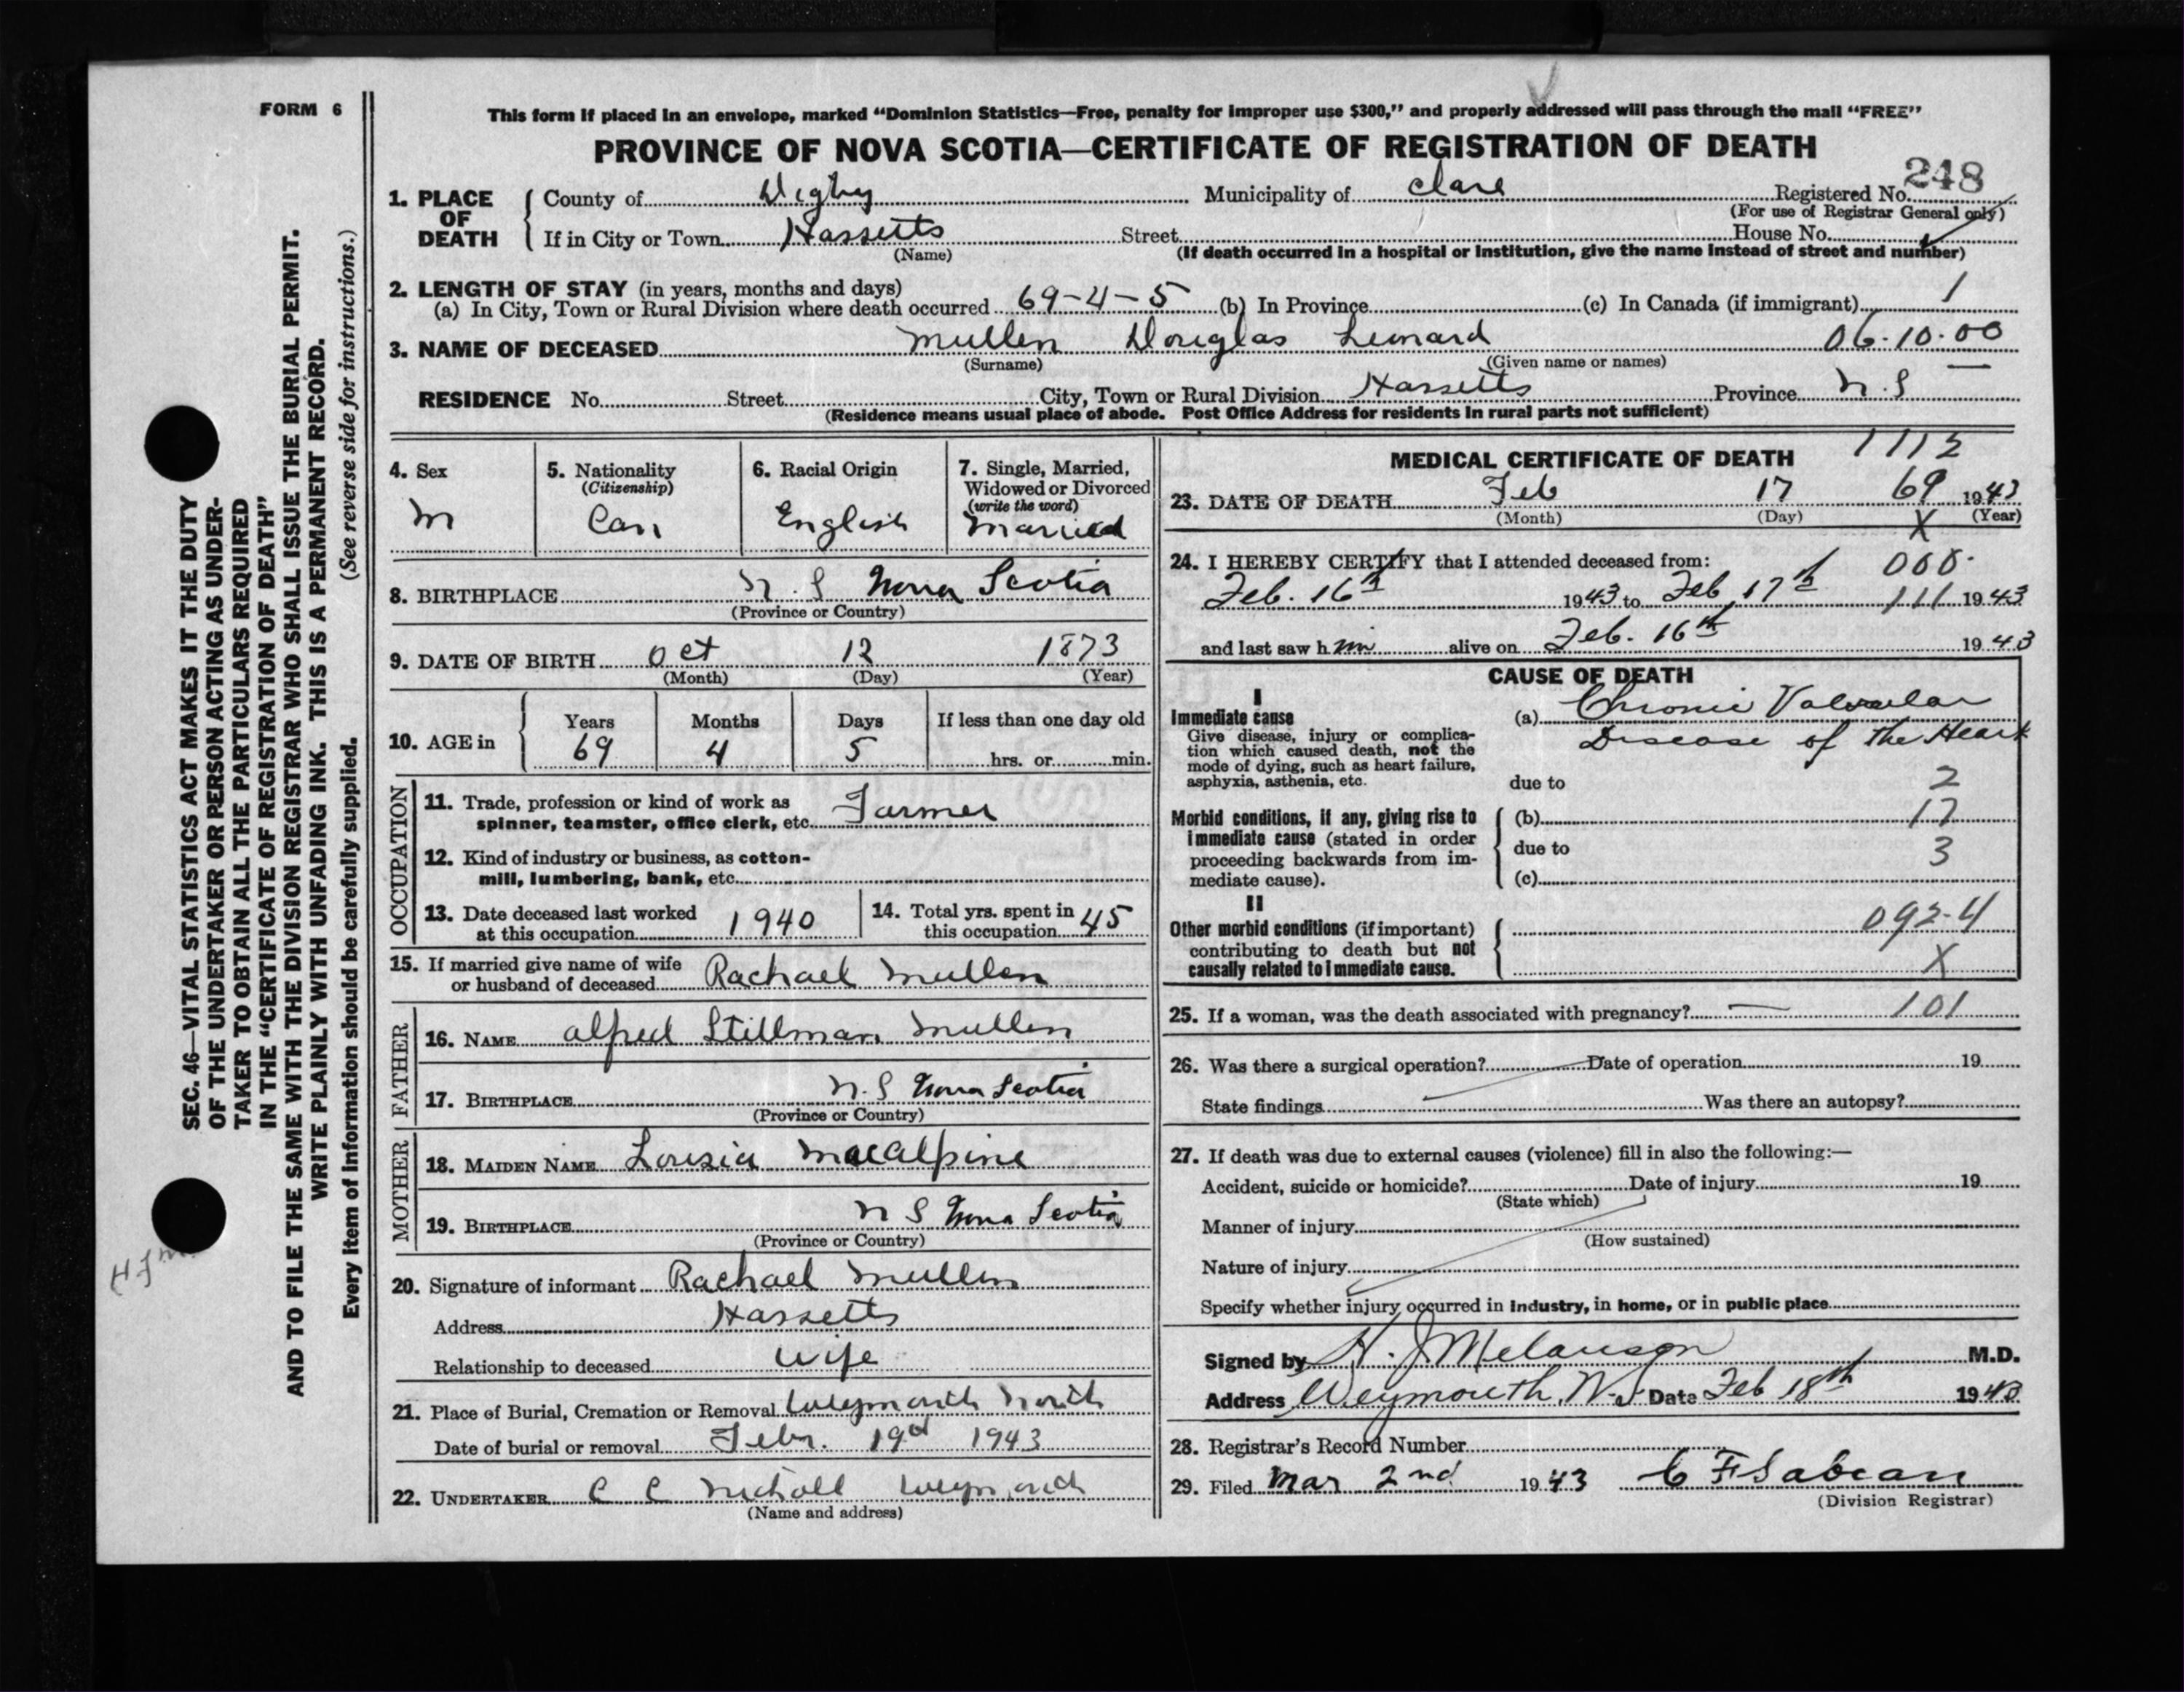 FORM 6
This form if placed in an envelope, marked “Dominion Statistics—Free, penalty for improper use $300,” and properly addressed will pass through the mail “FREE”
PROVINCE OF NOVA SCOTIA—CERTIFICATE OF REGISTRATION OF DEATH
248
1. PLACE OF DEATH County of Digby Municipality of Clare Registered No.
(For use of Registrar General only)
If in City or Town Hassetts Street House No.
(Name) (If death occurred in a hospital or institution, give the name instead of street and number)
2. LENGTH OF STAY (in years, months and days)
(a) In City, Town or Rural Division where death occurred 69-4-5 (b) In Province (c) In Canada (if immigrant) 1
3. NAME OF DECEASED Mullen Douglas Leonard 06.10.00
(Surname) (Given name or names)
RESIDENCE No. Street City, Town or Rural Division Hassetts Province N.S
(Residence means usual place of abode. Post Office Address for residents in rural parts not sufficient)
4. Sex
M
5. Nationality
(Citizenship)
Can
6. Racial Origin
English
7. Single, Married,
Widowed or Divorced
(write the word)
Married
8. BIRTHPLACE N.S Nova Scotia
(Province or Country)
9. DATE OF BIRTH Oct 12 1873
(Month) (Day) (Year)
10. AGE in
Years Months Days If less than one day old
69 4 5 hrs. or min.
OCCUPATION
11. Trade, profession or kind of work as
spinner, teamster, office clerk, etc. Farmer
12. Kind of industry or business, as cotton-
mill, lumbering, bank, etc.
13. Date deceased last worked
at this occupation 1940
14. Total yrs. spent in
this occupation 45
15. If married give name of wife
or husband of deceased Rachael Mullen
FATHER
16. NAME Alfred Stillman Mullen
17. BIRTHPLACE N.S Nova Scotia
(Province or Country)
MOTHER
18. MAIDEN NAME Lousia MacAlpine
19. BIRTHPLACE N S Nova Scotia
(Province or Country)
20. Signature of informant Rachael Mullen
Address Hassetts
Relationship to deceased Wife
21. Place of Burial, Cremation or Removal Weymouth North
Date of burial or removal Febr. 19th 1943
22. UNDERTAKER C C Nicholl Weymouth
(Name and address)
MEDICAL CERTIFICATE OF DEATH 1112
23. DATE OF DEATH Feb 17 69 1943
(Month) (Day) X (Year)
24. I HEREBY CERTIFY that I attended deceased from: 000.
Feb. 16th 1943 to Feb 17th 111 1943
and last saw him alive on Feb. 16th 1943
CAUSE OF DEATH
I
Immediate cause
Give disease, injury or complica-
tion which caused death, not the
mode of dying, such as heart failure,
asphyxia, asthenia, etc.
(a) Chronic Valvular
Disease of the Heart
due to 2
Morbid conditions, if any, giving rise to
immediate cause (stated in order
proceeding backwards from im-
mediate cause).
(b) 17
due to 3
(c)
II
Other morbid conditions (if important)
contributing to death but not
causally related to immediate cause.
092-4
X
25. If a woman, was the death associated with pregnancy? — 101
26. Was there a surgical operation? Date of operation 19
State findings Was there an autopsy?
27. If death was due to external causes (violence) fill in also the following:—
Accident, suicide or homicide? Date of injury 19
(State which)
Manner of injury
(How sustained)
Nature of injury
Specify whether injury occurred in industry, in home, or in public place
Signed by H. J Melanson M.D.
Address Weymouth, N.S Date Feb 18th 1943
28. Registrar's Record Number
29. Filed Mar 2nd 1943 C F Sabean
(Division Registrar)
SEC. 46—VITAL STATISTICS ACT MAKES IT THE DUTY
OF THE UNDERTAKER OR PERSON ACTING AS UNDER-
TAKER TO OBTAIN ALL THE PARTICULARS REQUIRED
IN THE “CERTIFICATE OF REGISTRATION OF DEATH”
AND TO FILE THE SAME WITH THE DIVISION REGISTRAR WHO SHALL ISSUE THE BURIAL PERMIT.
WRITE PLAINLY WITH UNFADING INK. THIS IS A PERMANENT RECORD.
(See reverse side for instructions.)
Every item of information should be carefully supplied.